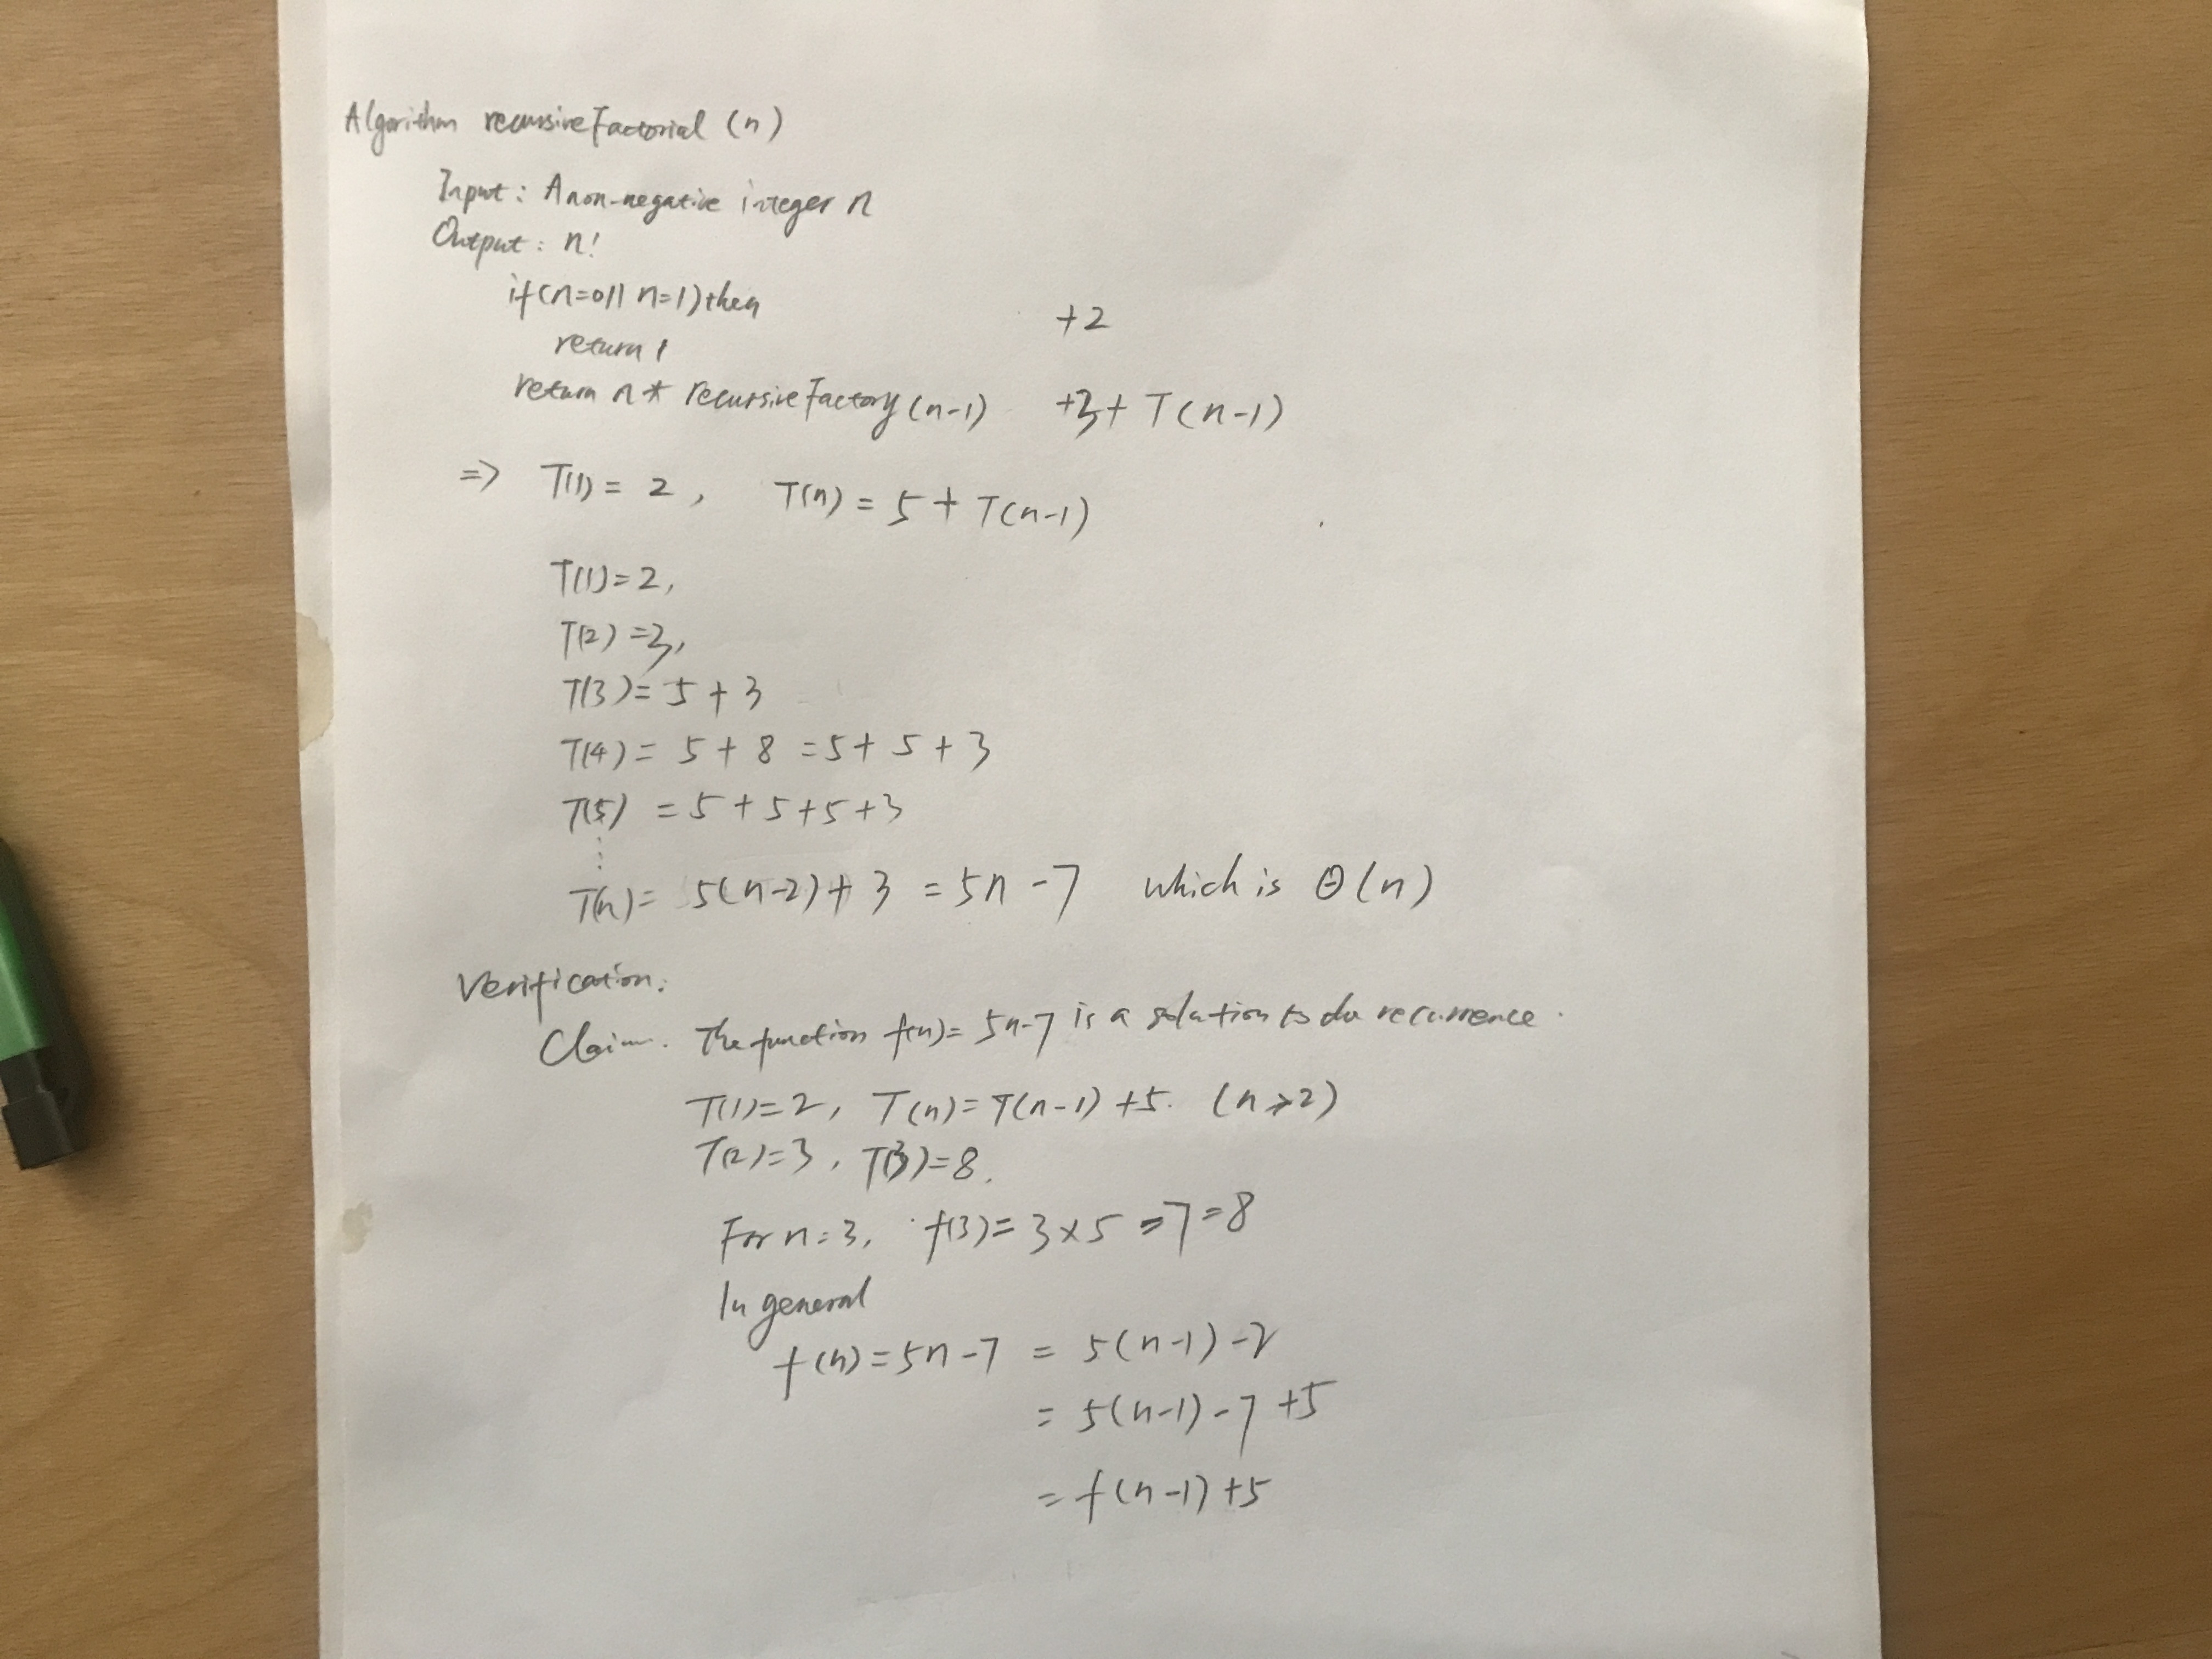 Algorithm recursiveFactorial (n)
Input: A non-negative integer n
Output: n!
if (n=0 || n=1) then
return 1 +2
return n * recursiveFactory (n-1) +3+ T(n-1)
=> T(1) = 2, T(n) = 5 + T(n-1)
T(1) = 2,
T(2) = 3,
T(3) = 5 + 3
T(4) = 5 + 8 = 5 + 5 + 3
T(5) = 5 + 5 + 5 + 3
⋮
T(n) = 5(n-2) + 3 = 5n - 7 which is Θ(n)
Verification:
Claim. The function f(n) = 5n-7 is a solution to da recurrence.
T(1) = 2, T(n) = T(n-1) + 5. (n>2)
T(2) = 3, T(3) = 8.
For n = 3, f(3) = 3 × 5 - 7 = 8
In general
f(n) = 5n - 7 = 5(n-1) - 2
= 5(n-1) - 7 + 5
= f(n-1) + 5